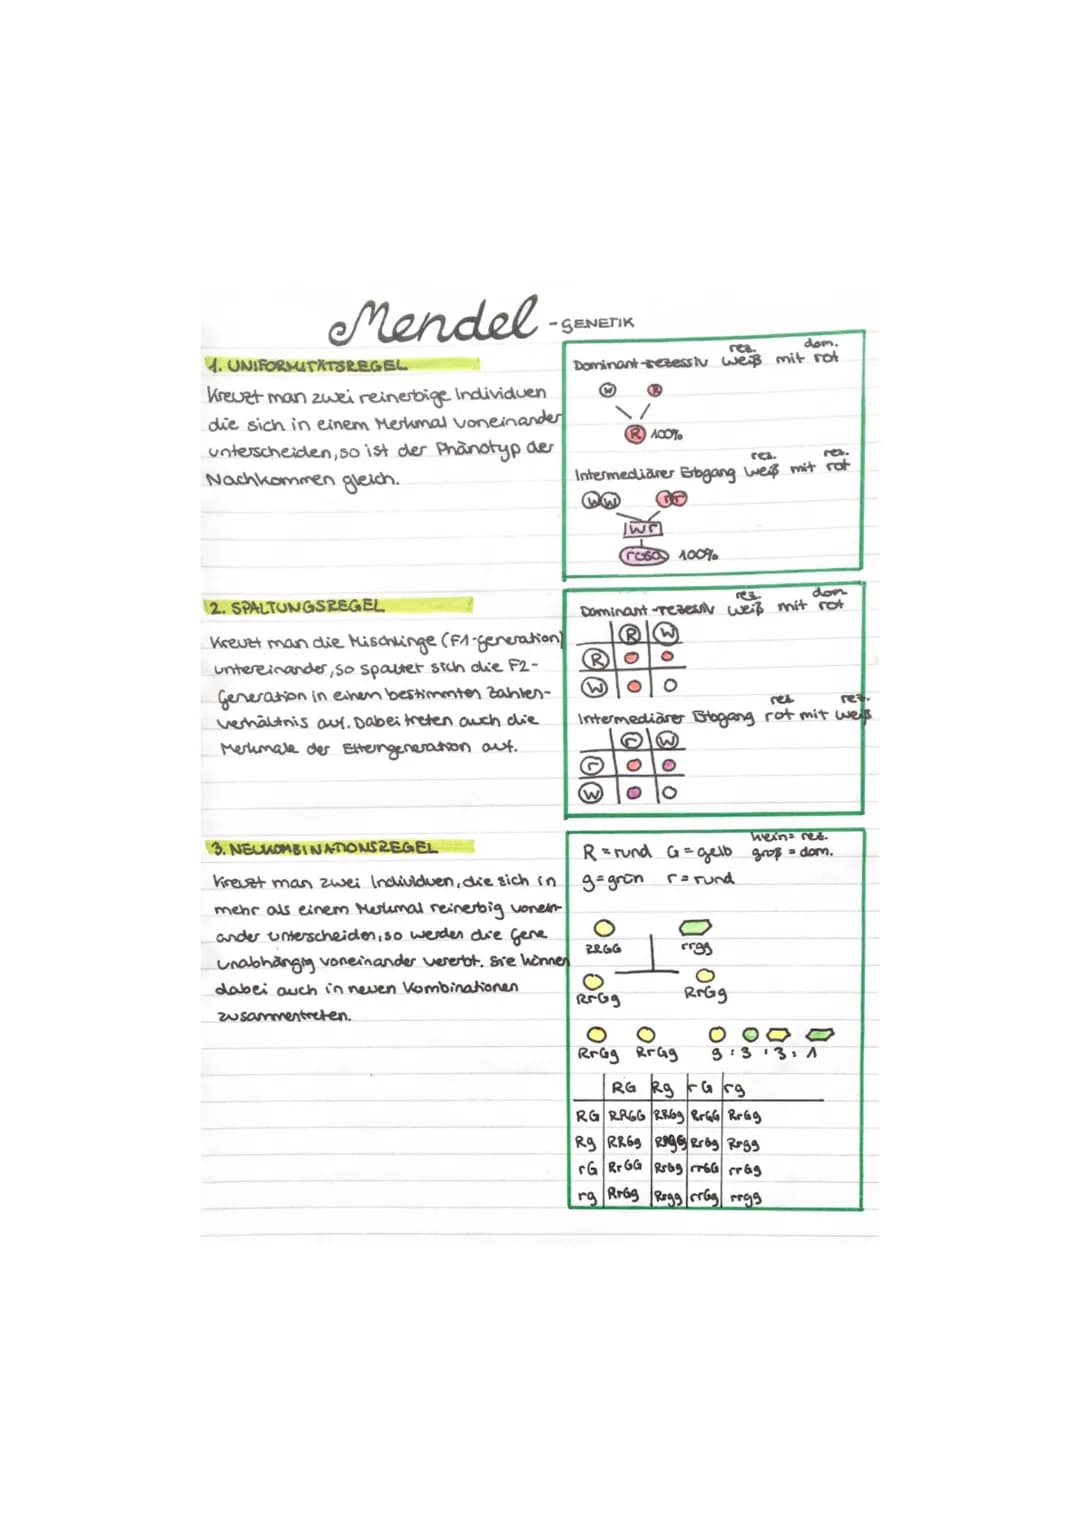 Mendel - GENETIK
1. UNIFORMITÄTSREGEL
Kreuzt man zwei reinerbige Individuen
die sich in einem Merkmal voneinander
unterscheiden, so ist der Phänotyp der
Nachkommen gleich.
rez. dom.
Dominant-rezessiv weiß mit rot
W R
R 100%
rez. rez.
Intermediärer Erbgang weiß mit rot
W W r r
wr
rosa 100%
2. SPALTUNGSREGEL
Kreuzt man die Mischlinge (F1-Generation)
untereinander, so spaltet sich die F2-
Generation in einem bestimmten Zahlen-
verhältnis auf. Dabei treten auch die
Merkmale der Elterngeneration auf.
rez. dom
Dominant-rezessiv weiß mit rot
R W
R
W
rez rez.
Intermediärer Erbgang rot mit weiß
r W
r
W
3. NEUKOMBINATIONSREGEL
Kreuzt man zwei Individuen, die sich in
mehr als einem Merkmal reinerbig vonein-
ander unterscheiden, so werden die Gene
unabhängig voneinander vererbt. Sie können
dabei auch in neuen Kombinationen
zusammentreten.
klein = rez.
R = rund G = gelb groß = dom.
g = grün r = rund
RRGG rrgg
RrGg RrGg
RrGg RrGg 9 : 3 : 3 : 1
RG Rg rG rg
RG RRGG RRGg RrGG RrGg
Rg RRGg RRgg RrGg Rrgg
rG RrGG RrGg rrGG rrGg
rg RrGg Rrgg rrGg rrgg